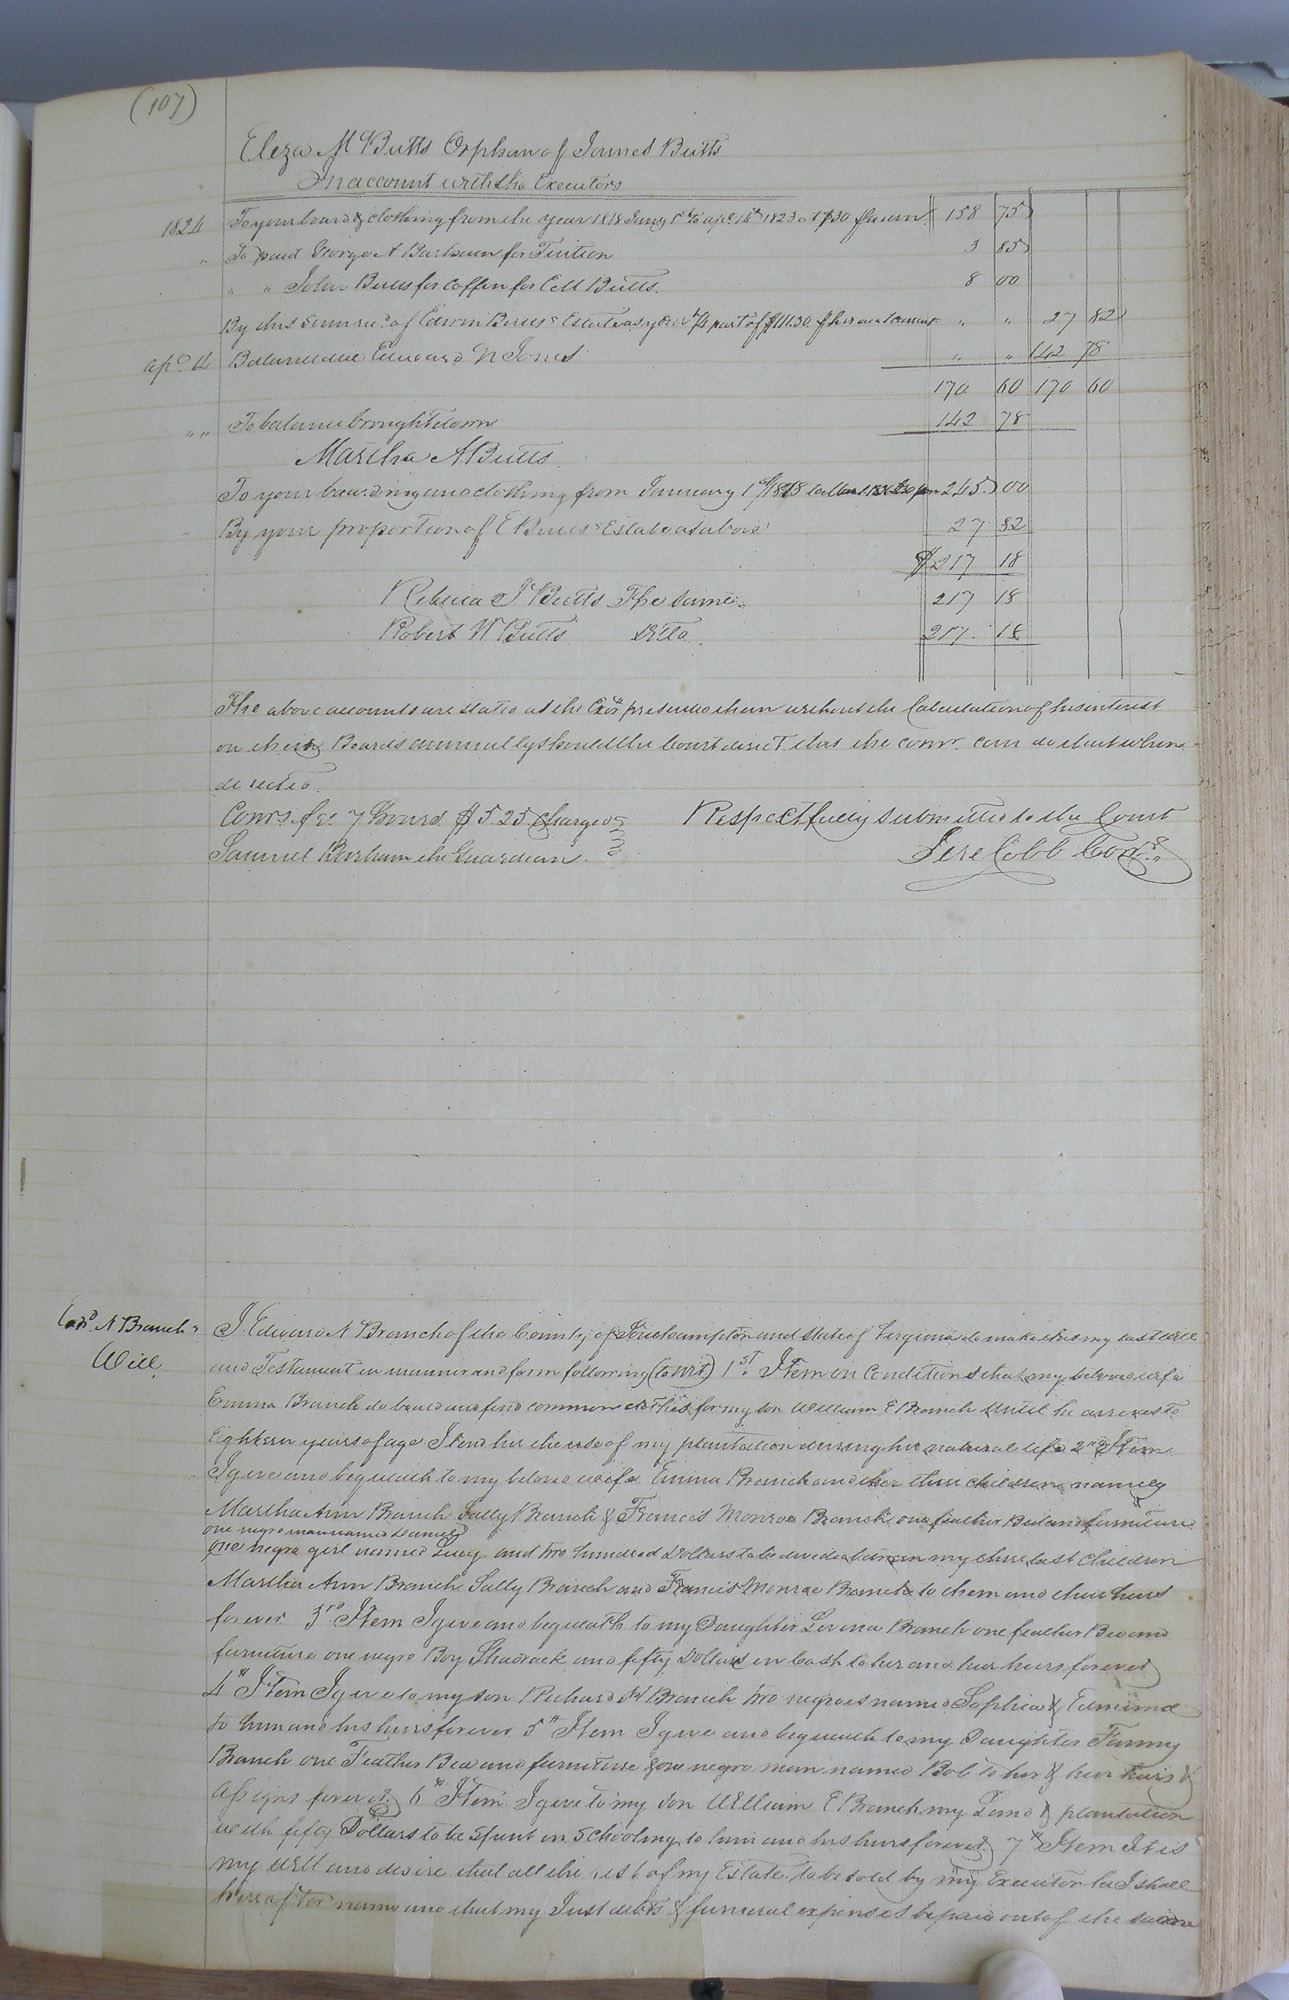 (107)
Eliza M Butts Orphan of James Butts
In account with the Executors
1824 To your board & clothing from the year 1818 Jany 1st to apl 14th 1823 at $30 pr annum 158 75
" To paid George A Barham for Tuition 3 85
" " John Butts for Coffin for Butts 8 00
By this sum recd of Edwin Butts Estate as your 1/4 part of $111.30 pr his acct Current " " 27 82
apl 14 Balance due Edward N Jones " " 142 78
170 60 170 60
" " To balance brought down 142 78
Martha A Butts
To your boarding and clothing from January 1st 1818 245 00
By your proportion of E Butts Estate as above 27 82
$217 18
Rebecca J Butts The same 217 18
Robert W Butts Ditto 217 18
The above accounts are stated as the Exors presented them without the Calculation of his interest
on their Boards annually should the Court direct this the comr. can do that when
directed.
Comrs. fee 7 hours $5.25 charged Respectfully submitted to the Court
Samuel Barham the Guardian. Jere Cobb Comr.
Edwd A Branch's I Edward A Branch of the County of Southampton and State of Virginia do make this my last will
Will and Testament in manner and form following (to wit) 1st Item on Conditions that my beloved wife
Emma Branch do board and find common clothes for my son William E Branch until he arrives to
Eighteen years of age I lend her the use of my plantation during her natural life 2nd Item
I give and bequeath to my beloved wife Emma Branch and her three children namely
Martha Ann Branch Sally Branch & Francis Monroe Branch one feather Bed and furniture
one negro man named
one negro girl named Lucy and two hundred Dollars to be divided between my three last children
Martha Ann Branch Sally Branch and Francis Monroe Branch to them and their heirs
forever 3rd Item I give and bequeath to my Daughter Lovina Branch one feather Bed and
furniture one negro Boy Shadrack and fifty Dollars in Cash to her and her heirs forever
4th Item I give to my son Richard H Branch two negroes named Sophia &
to him and his heirs forever 5th Item I give and bequeath to my Daughter Fanny
Branch one Feather Bed and furniture & one negro man named Bob to her & her heirs &
assigns forever 6th Item I give to my son William E Branch my Land & plantation
with fifty Dollars to be spent in Schooling to him and his heirs forever 7th Item It is
my will and desire that all the rest of my Estate to be sold by my Executor he I shall
hereafter name and that my Just debts & funeral expenses be paid out of the same